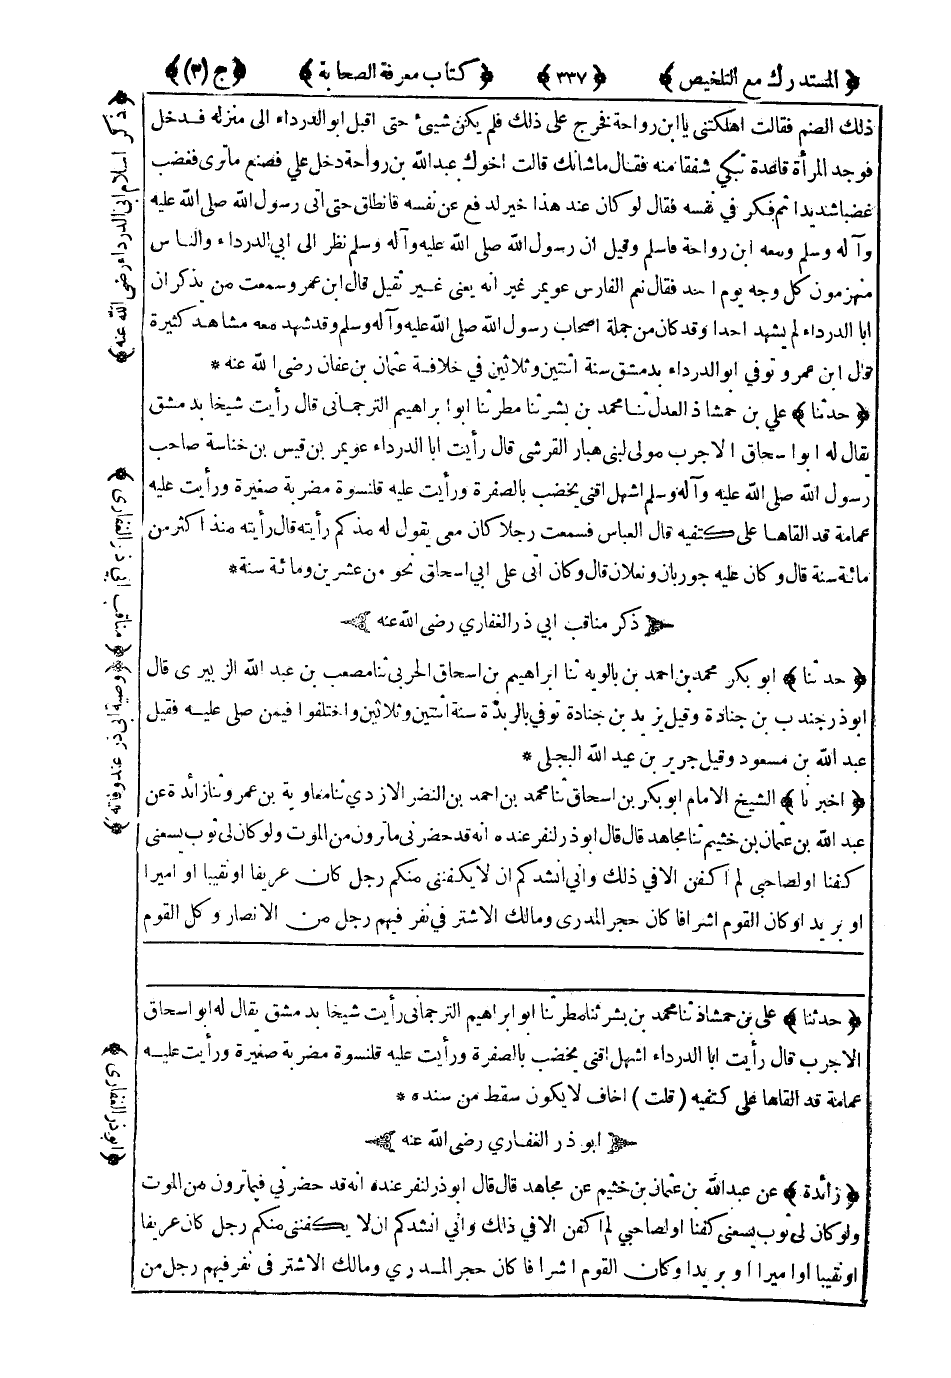 ﴿ المستدرك مع التلخيص ﴾ ﴿ ٣٣٧ ﴾ ﴿ كتاب معرفة الصحابة ﴾ ﴿ ج (٣) ﴾
ذلك الصنم فقالت اهلكتنى يا ابن رواحة فخرج على ذلك فلم يكن شيئ حتى اقبل ابو الدرداء الى منزله فدخل
فوجد المرأة قاعدة تبكي شفقا منه فقال ما شانك قالت اخوك عبدالله بن رواحة دخل علي فصنع ما ترى فغضب
غضبا شديدا ثم فكر في نفسه فقال لو كان عند هذا خير لدفع عن نفسه فانطلق حتى أتى رسول الله صلى الله عليه
وآله وسلم ومعه ابن رواحة فاسلم وقيل ان رسول الله صلى الله عليه وآله وسلم نظر الى ابي الدرداء والناس
منهزمون كل وجه يوم احد فقال نعم الفارس عويمر غير انه يعنى غير ثقيل قال ابن عمر وسمعت من يذكر ان
ابا الدرداء لم يشهد احدا وقد كان من جملة اصحاب رسول الله صلى الله عليه وآله وسلم وقد شهد معه مشاهد كثيرة
قال ابن عمر و توفي ابو الدرداء بدمشق سنة اثنتين وثلاثين في خلافة عثمان بن عفان رضى الله عنه *
﴿ حدثنا ﴾ علي بن حمشاذ العدل ثنا محمد بن بشر ثنا مطر ثنا ابو ابراهيم الترجمانى قال رأيت شيخا بدمشق
يقال له ابو اسحاق الاجرب مولى لبنى هبار القرشى قال رأيت ابا الدرداء عويمر بن قيس بن خناسة صاحب
رسول الله صلى الله عليه وآله وسلم اشهل اقنى يخضب بالصفرة ورأيت عليه قلنسوة مضربة صغيرة ورأيت عليه
عمامة قد القاها على كتفيه قال العباس فسمعت رجلا كان معى يقول له مذ كم رأيته قال رأيته منذ اكثر من
مائة سنة قال وكان عليه جوربان ونعلان قال وكان اتى على ابي اسحاق نحو من عشرين ومائة سنة *
ذكر مناقب ابي ذر الغفاري رضى الله عنه
﴿ حدثنا ﴾ ابو بكر محمد بن احمد بن بالويه ثنا ابراهيم بن اسحاق الحربي ثنا مصعب بن عبد الله الزبيرى قال
ابوذر جندب بن جنادة وقيل يزيد بن جنادة توفي بالربذة سنة اثنتين وثلاثين واختلفوا فيمن صلى عليه فقيل
عبد الله بن مسعود وقيل جرير بن عبد الله البجلى *
﴿ اخبرنا ﴾ الشيخ الامام ابو بكر بن اسحاق ثنا محمد بن احمد بن النضر الازدي ثنا معاوية بن عمرو ثنا زائدة عن
عبد الله بن عثمان بن خثيم ثنا مجاهد قال قال ابوذر لنفر عنده انه قد حضرنى ما ترون من الموت ولو كان لى ثوب يسعنى
كفنا او لصاحبي لم اكفن الا في ذلك واني انشدكم ان لا يكفننى منكم رجل كان عريفا او نقيبا او اميرا
او بريدا وكان القوم اشرافا كان حجر المدرى ومالك الاشتر في نفر فيهم رجل من الانصار وكل القوم
﴿ حدثنا ﴾ على بن حمشاذ ثنا محمد بن بشر ثنا مطر ثنا ابو ابراهيم الترجمانى رأيت شيخا بدمشق يقال له ابو اسحاق
الاجرب قال رأيت ابا الدرداء اشهل اقنى يخضب بالصفرة ورأيت عليه قلنسوة مضربة صغيرة ورأيت عليه
عمامة قد القاها على كتفيه ( قلت ) اخاف لا يكون سقط من سنده *
ابو ذر الغفاري رضى الله عنه
﴿ زائدة ﴾ عن عبدالله بن عثمان بن خثيم عن مجاهد قال قال ابوذر لنفر عنده انه قد حضرنى فيما ترون من الموت
ولو كان لى ثوب يسعنى كفنا او لصاحبي لم اكفن الا في ذلك واني انشدكم ان لا يكفننى منكم رجل كان عريفا
او نقيبا او اميرا او بريدا وكان القوم اشرافا كان حجر المدري ومالك الاشتر فى نفر فيهم رجل من
﴿ ذكر اسلام ابي الدرداء رضى الله عنه ﴾
﴿ مناقب ابي ذر الغفارى ﴾
﴿ وصية ابى ذر عند وفاته ﴾
﴿ ابو ذر الغفارى ﴾